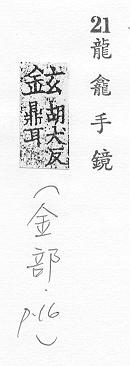 21龍龕手鏡
鉉胡犬反
鼎耳
（金部・p.16）